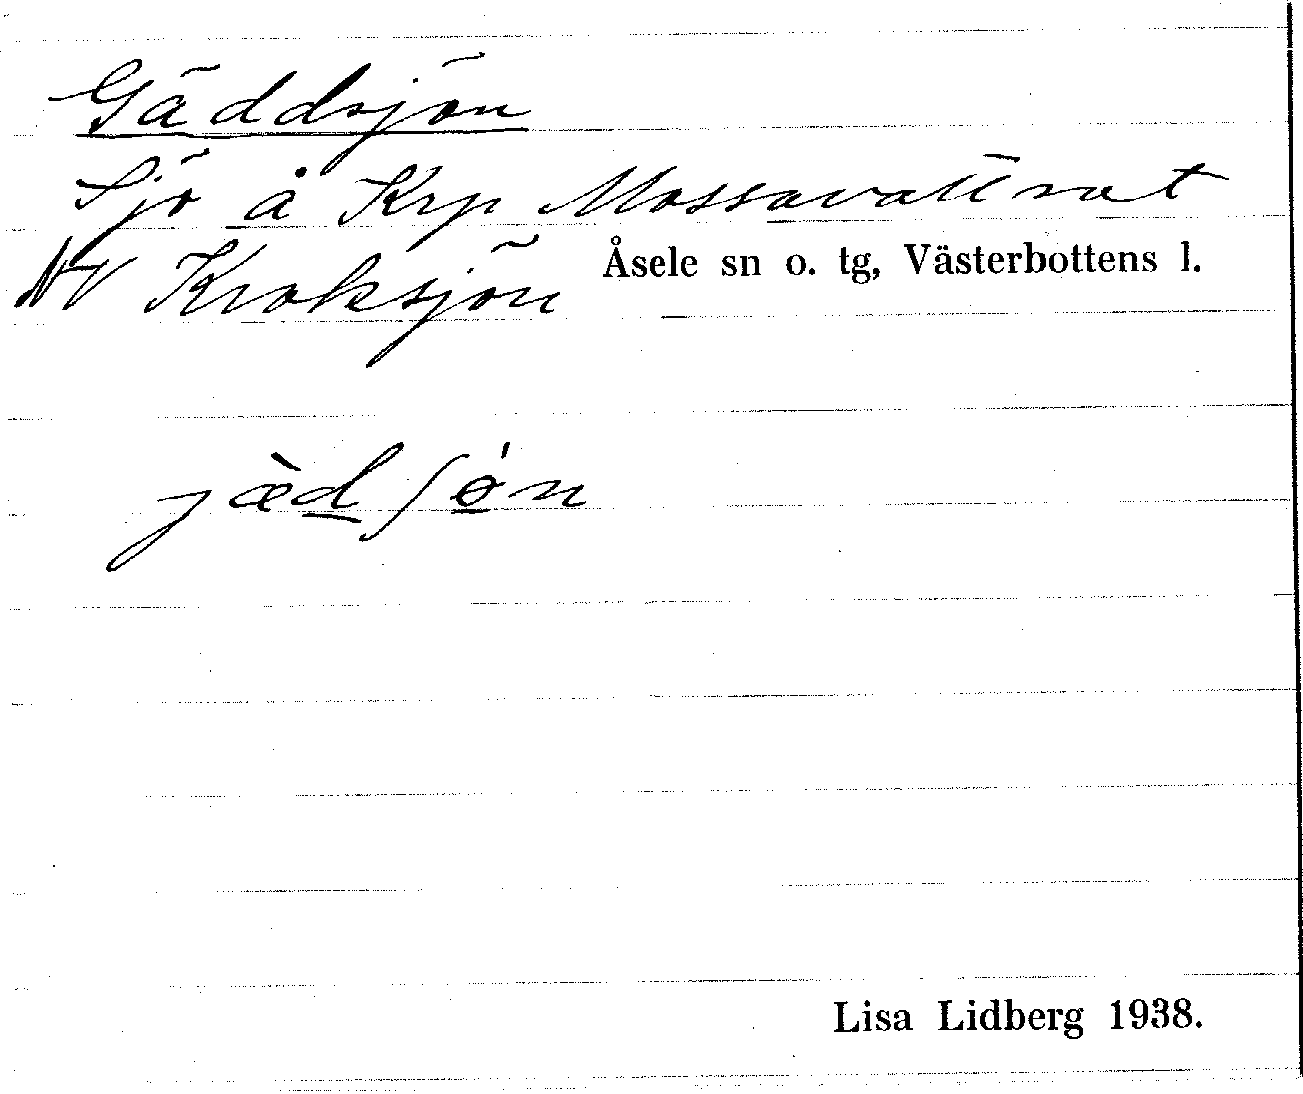 Gäddsjön
Sjö å Krp Mossavattnet
NV Kroksjön
Åsele sn o. tg, Västerbottens l.
jæ̀dʃø̀n
Lisa Lidberg 1938.